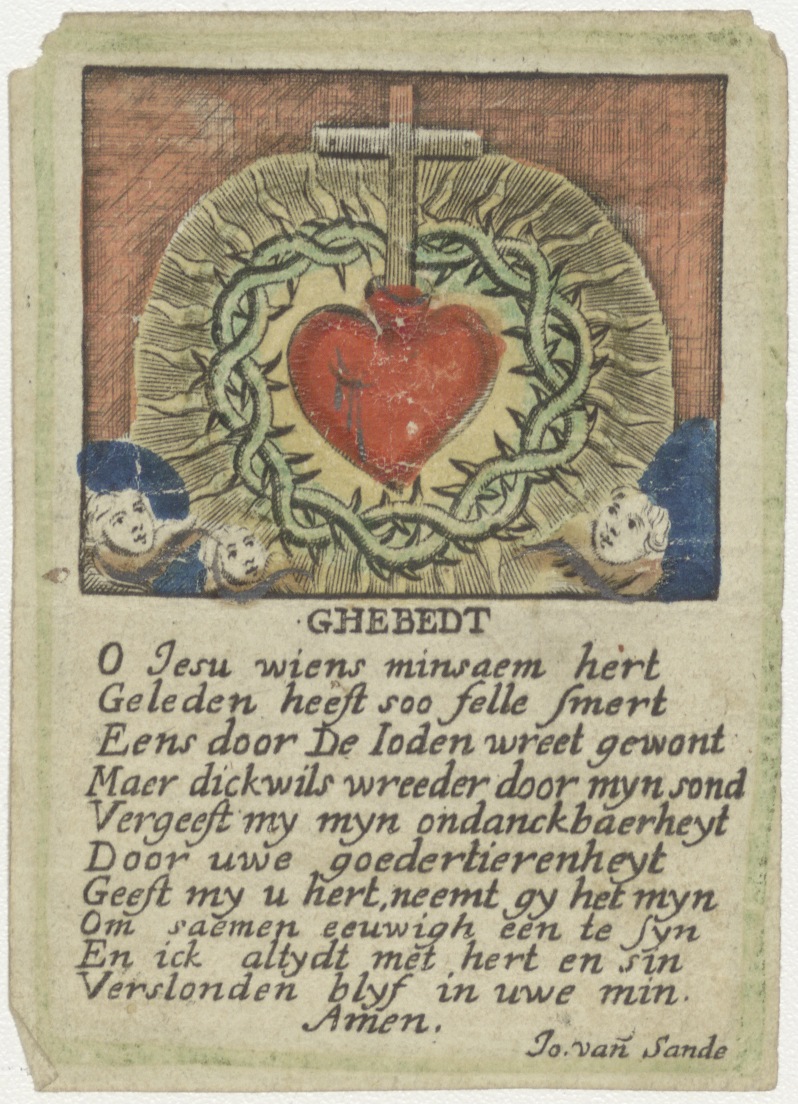 GHEBEDT
O Jesu wiens minsaem hert
Geleden heeft soo felle smert
Eens door De Ioden wreet gewont
Maer dickwils wreeder door myn sond
Vergeeft my myn ondanckbaerheyt
Door uwe goedertierenheyt
Geeft my u hert, neemt gy het myn
Om saemen eeuwigh een te syn
En ick altydt met hert en sin
Verslonden blyf in uwe min.
Amen.
Jo. van Sande